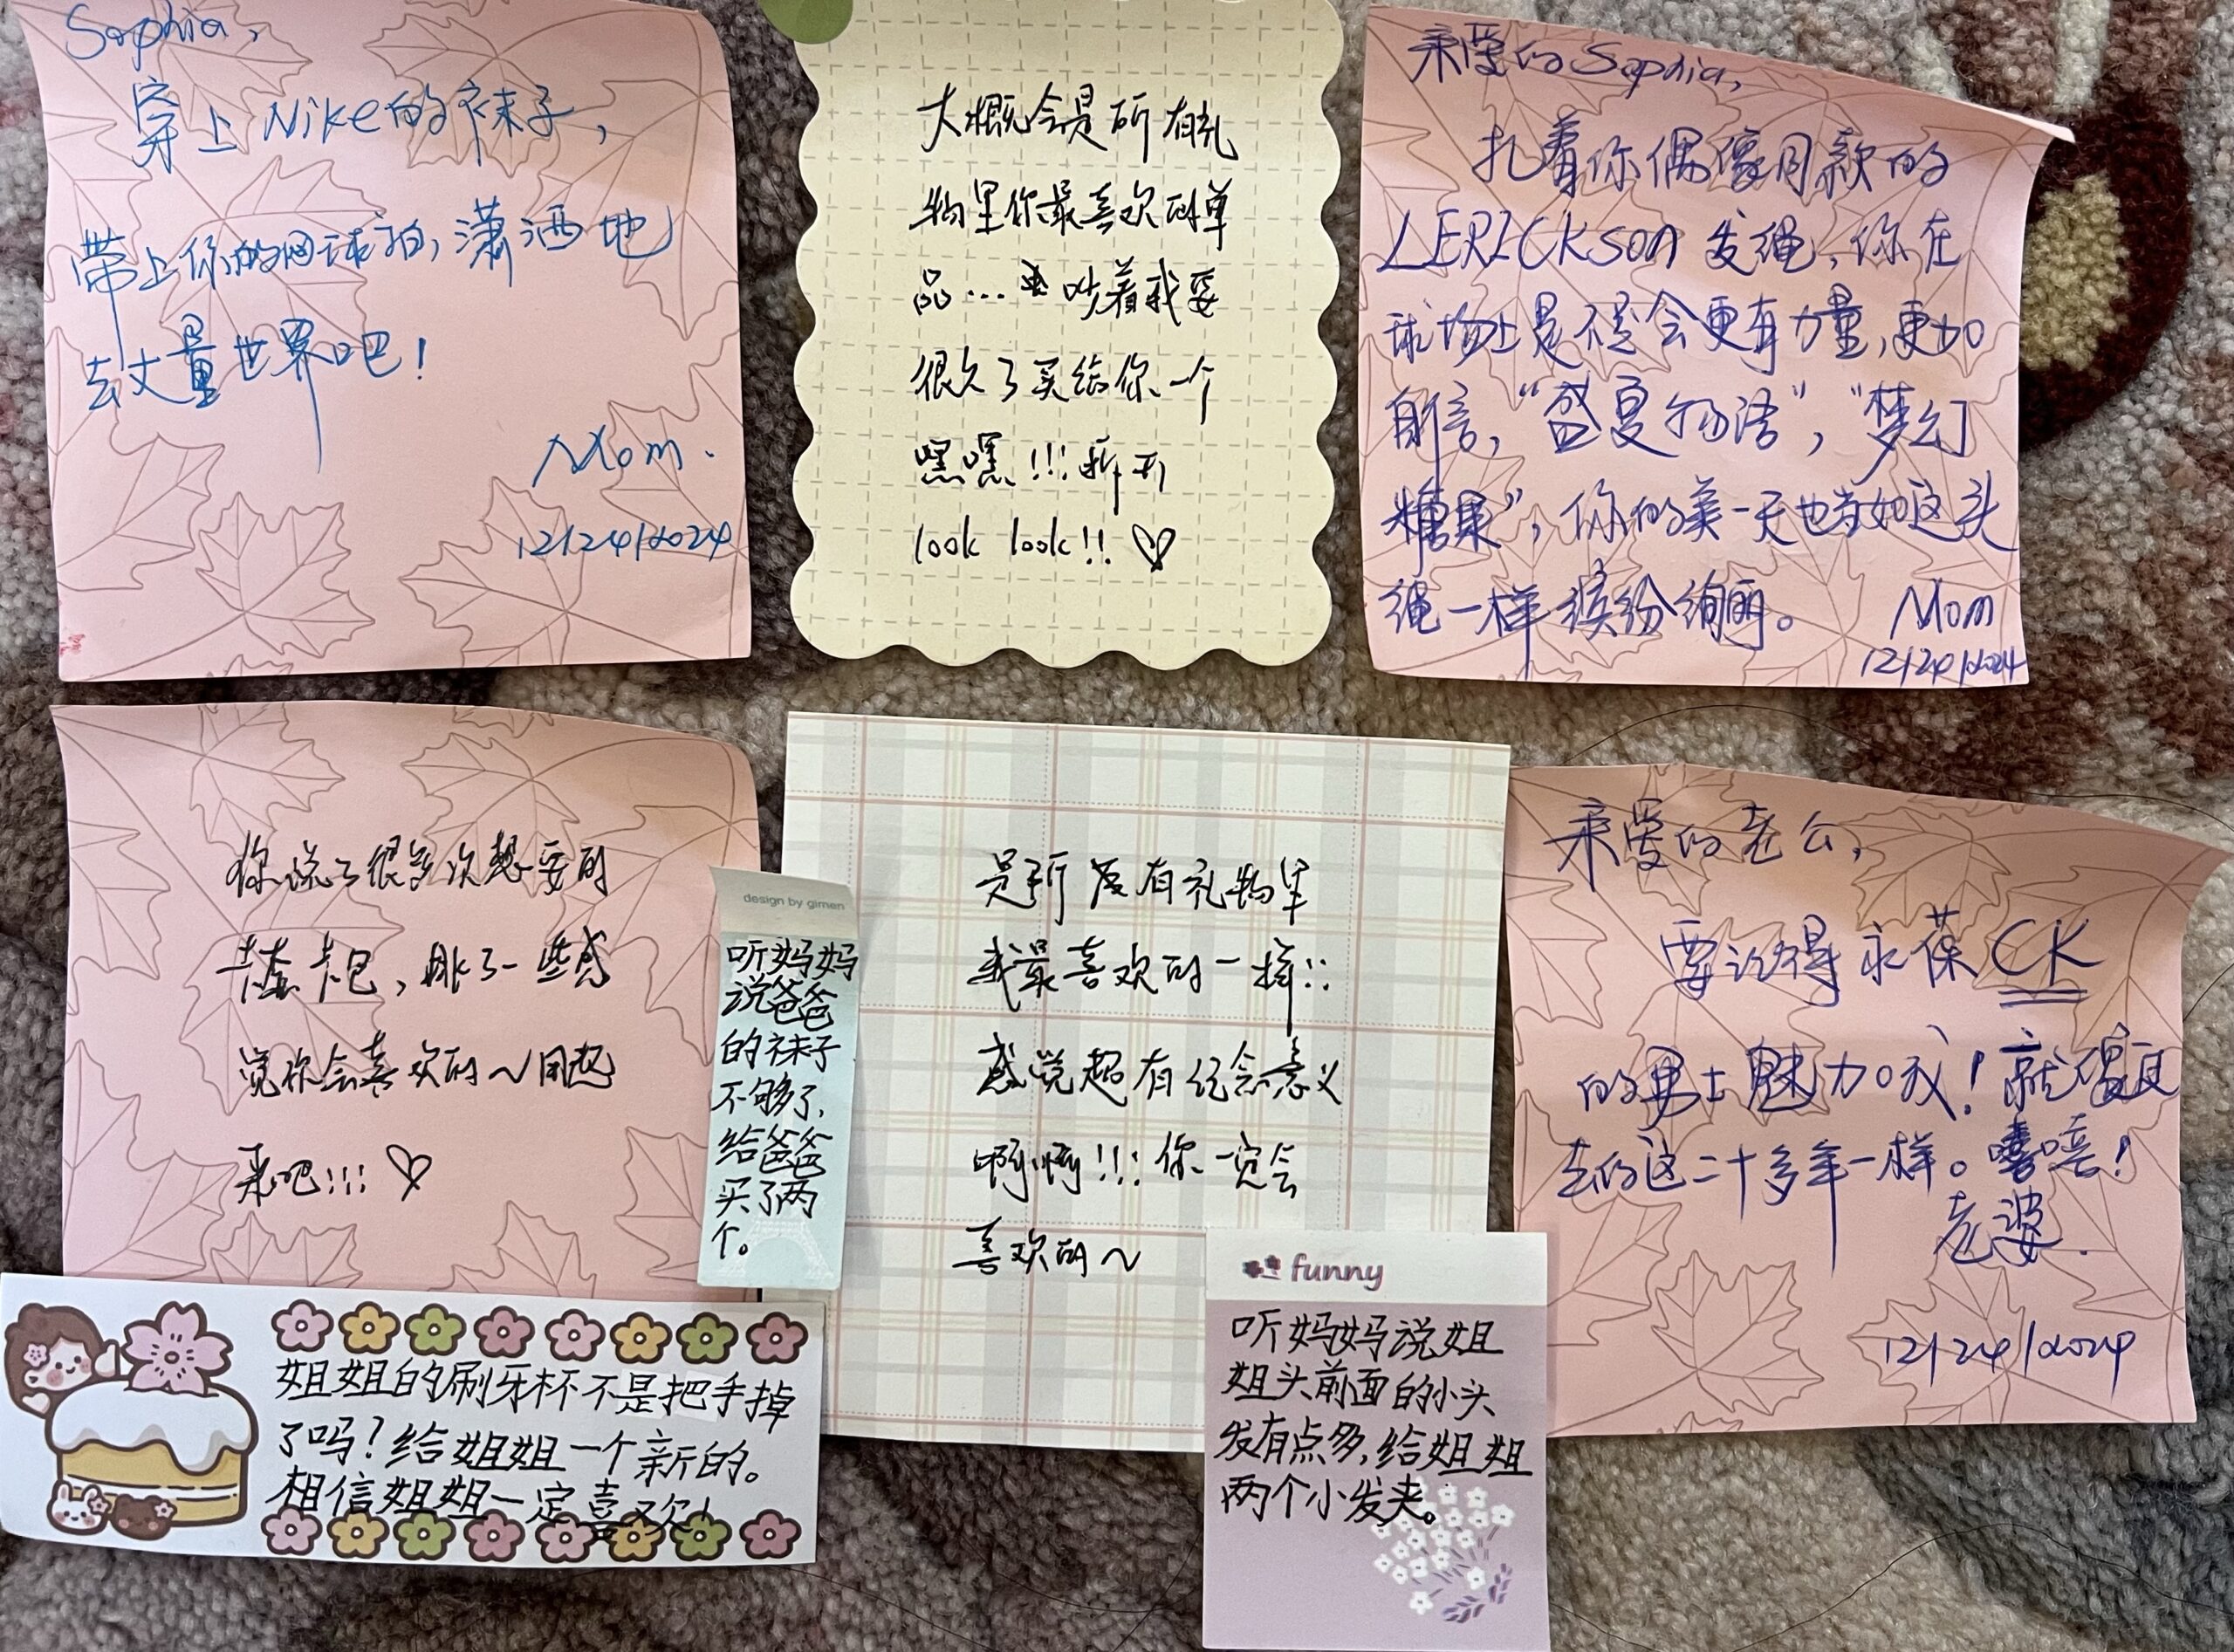 Sophia,
穿上Nike的袜子,
带上你的网球拍,潇洒地
去丈量世界吧!
Mom.
12/24/2024
大概会是所有礼
物里你最喜欢的单
品... 吵着我要
很久了买给你一个
嘿嘿!!!拆开
look look!! ♡
亲爱的Sophia,
扎着你偶像同款的
LERICKson 发绳,你在
球场上是不是会更有力量,更加
自信,“盛夏物语”,“梦幻
糖果”,你的每一天也当如这头
绳一样缤纷绚丽。
Mom
12/24/2024
你说了很多次想要的
卡套卡包,挑了一些感
觉你会喜欢的~用起
来吧!!! ♡
design by gimen
听妈妈
说爸爸
的袜子
不够了,
给爸爸
买了两
个。
是所有礼物里
我最喜欢的一样!!
感觉超有纪念意义
啊啊!!!你一定会
喜欢的~
亲爱的老公,
要记得永葆CK
的男士魅力哦!就像过
去的这二十多年一样。嘻嘻!
老婆.
12/24/2024
姐姐的刷牙杯不是把手掉
了吗?给姐姐一个新的。
相信姐姐一定喜欢!
funny
听妈妈说姐
姐头前面的小头
发有点多,给姐姐
两个小发夹。